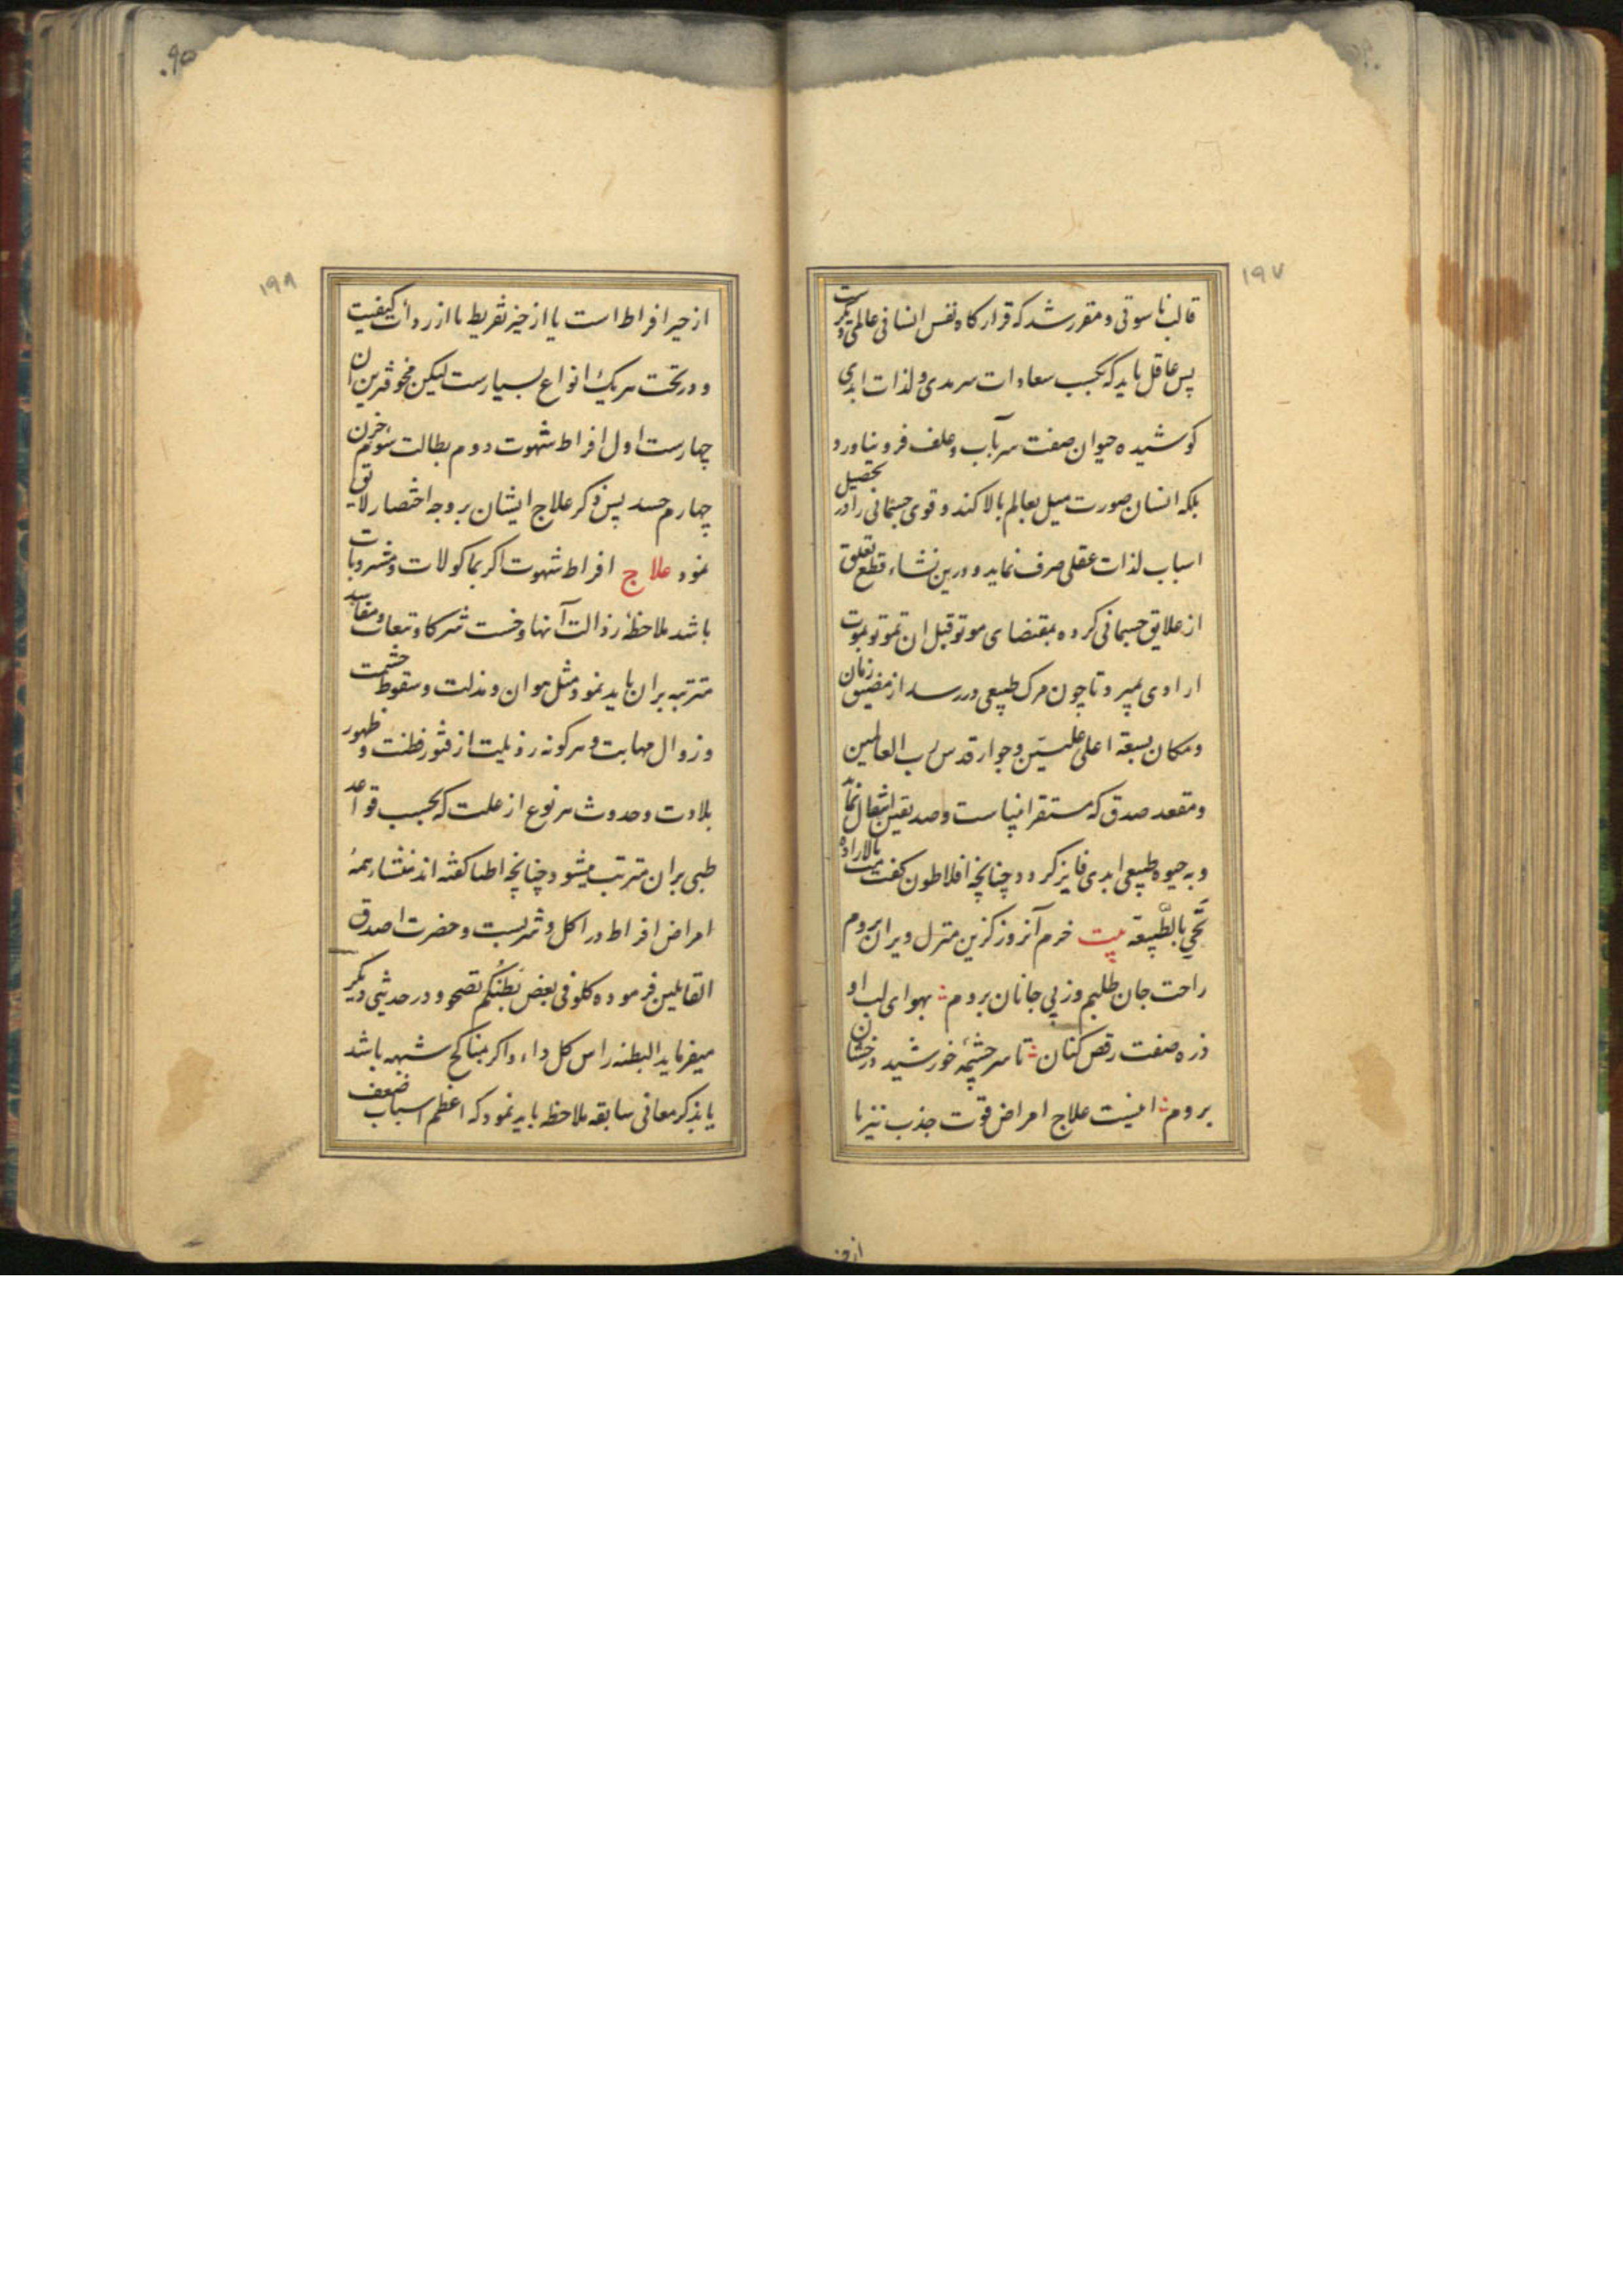 ۱۹۷
قالب ناسوتی و مقرر شد که قرار کاه نفس انسانی عالمی دیکرست
پس عاقل باید که بکسب سعادات سرمدی و لذات ابدی
کوشیده حیوان صفت سر بآب و علف فرو نیاورد
بلکه انسان صورت میل بعالم بالا کند و قوی جسمانی را در تحصیل
اسباب لذات عقلی صرف نماید و درین نشاء قطع تعلق
از علایق جسمانی کرده بمقتضای موتو قبل ان تموتو بموت
ارادی بمیرد تا چون مرک طبیعی در رسد از مضیق زمان
و مکان بسعة اعلی علیّین و جوار قدس رب العالمین
و مقعد صدق که مستقر انبیاست و صدیقین انتقال نماید
و به حیوه طبیعی ابدی فایز کردد چنانچه افلاطون کفت مت بالاراده
تَحْیِ بالطّبیعة بیت خرم آنروز کزین منزل ویران بروم
راحت جان طلبم وز پی جانان بروم بهوای لب او
ذره صفت رقص کنان تا سر چشمه خورشید درخشان
بروم اینست علاج امراض قوت جذب نیز یا
۱۹۸
۹۵
از حیز افراط است یا از حیز تفریط یا از ردأت کیفیت
و در تحت هر یک انواع بسیارست لیکن مخوفترین ان
چهارست اول افراط شهوت دوم بطالت سوئم حزن
چهارم حسد پس ذکر علاج ایشان بر وجه اختصار لایق
نمود علاج افراط شهوت اکر بماکولات و مشروبات
باشد ملاحظهٔ رذالت آنها و خست شرکا و تبعات و مفاسد
مترتبه بران باید نمود مثل هوان و مذلت و سقوط حشمت
و زوال مهابت و هر کونه رذیلیت از فتور فطنت و ظهور
بلادت و حدوث هر نوع از علت که بحسب قواعد
طبی بران مترتب میشود چنانچه اطبا کفته اند منشاء همهٔ
امراض افراط در اکل و شربست و حضرت اصدق
القایلین فرموده کلو فی بعض بَطْنُکُم تصحو و در حدیثی دیکر
میفرماید البطنه راس کل داء و اکر بمناکح شبهه باشد
یا بذکر معانی سابقه ملاحظه باید نمود که اعظم اسباب ضعف